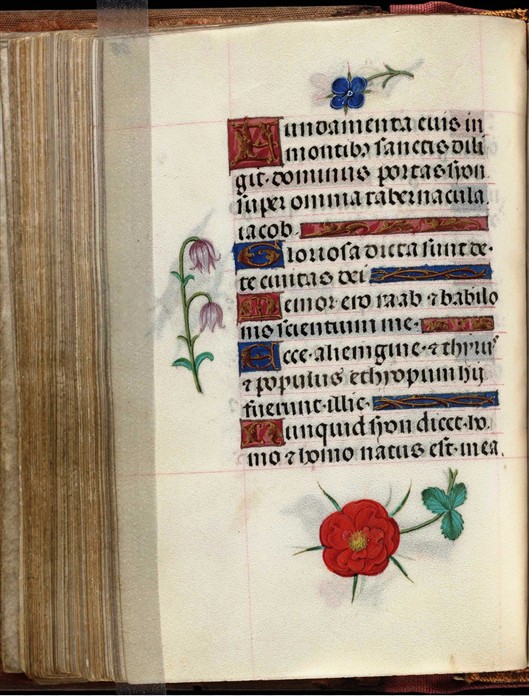 Fundamenta eius in
montibꝫ sanctis dili
git· dominus portas syon
super omnia tabernacula.
iacob.
Gloriosa dicta sunt de·
te ciuitas dei
Memor ero raab ⁊ babilo
nis scientium me·
Ecce· alienigine· ⁊ thyrus
⁊ populus ethyopum hij
fuerunt· illic·
Nunquid syon dicet· ho.
mo ⁊ homo natus est· in ea.